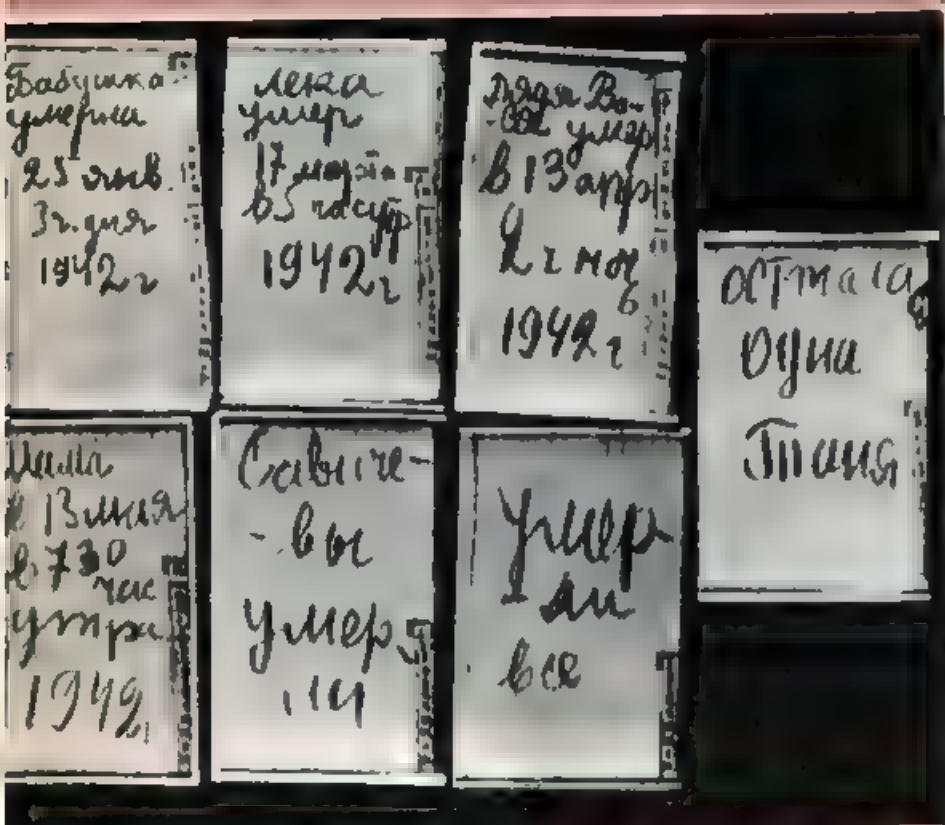 Бабушка
умерла
25 янв.
3ч. дня
1942г
Лека
умер
17 марта
в 5 часутр
1942г
Дядя Ва-
-ся умер
в 13 апр
2ч ноч
1942г
Мама
в 13 мая
в 7 30
час
утра
1942г
Савиче-
-вы
умер
ли
Умер
ли
все
Осталась
одна
Таня